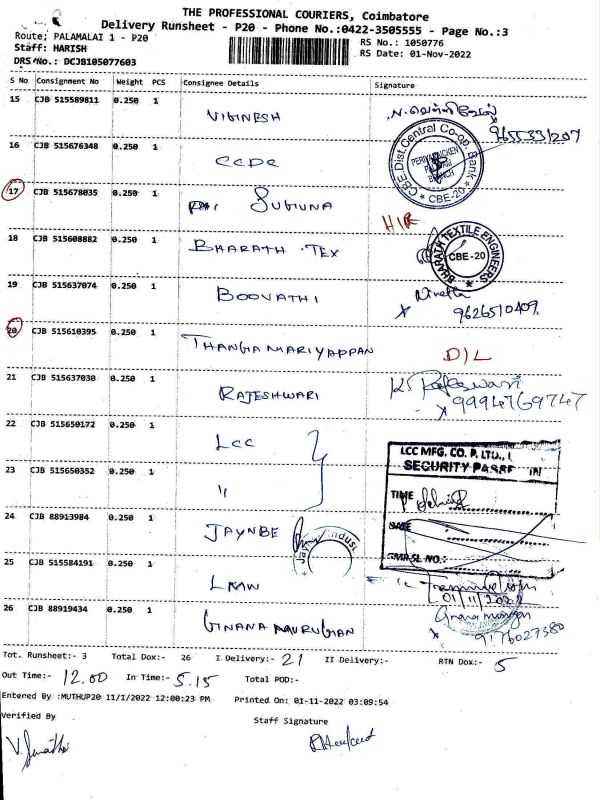 THE PROFESSIONAL COURIERS, Coimbatore
Delivery Runsheet - P20 - Phone No.:0422-3505555 - Page No.:3
Route; PALAMALAI 1 - P20
RS No.: 1050776
Staff: HARISH
RS Date: 01-Nov-2022
DRS No.: DCJB105077603
S No Consignment No Weight PCS Consignee Details Signature
15 CJB 515589811 0.250 1 VIGINESH
9655331207
16 CJB 515676348 0.250 1 CCDC
CBE Dist. Central Co-op. Bank
PERIYANAICKEN
PALAYAM
BRANCH
* CBE-20 *
17 CJB 515678035 0.250 1 SUGUNA
18 CJB 515608882 0.250 1 BHARATH . TEX
BHARATH TEXTILE ENGINEERS
CBE-20
19 CJB 515637074 0.250 1 BOOVATHI
x 9626510409
20 CJB 515610395 0.250 1 THANGAMARIYAPPAN D/L
21 CJB 515637030 0.250 1 RAJESHWARI
x 9994769747
22 CJB 515650172 0.250 1 LCC
LCC MFG. CO. P. LTD.,
SECURITY PASSED IN
23 CJB 515650352 0.250 1 "
TIME
DATE
24 CJB 88913984 0.250 1 JAYNBE
SL NO.:
25 CJB 515584191 0.250 1 LMW
01/11/2022
26 CJB 88919434 0.250 1 GNANAMURUGAN
Gnanamurugan
x 9176027380
Tot. Runsheet:- 3 Total Dox:- 26 I Delivery:- 21 II Delivery:- RTN Dox:- 5
Out Time:- 12.00 In Time:- 5.15 Total POD:-
Entered By :MUTHUP20 11/1/2022 12:00:23 PM Printed On: 01-11-2022 03:09:54
Verified By Staff Signature